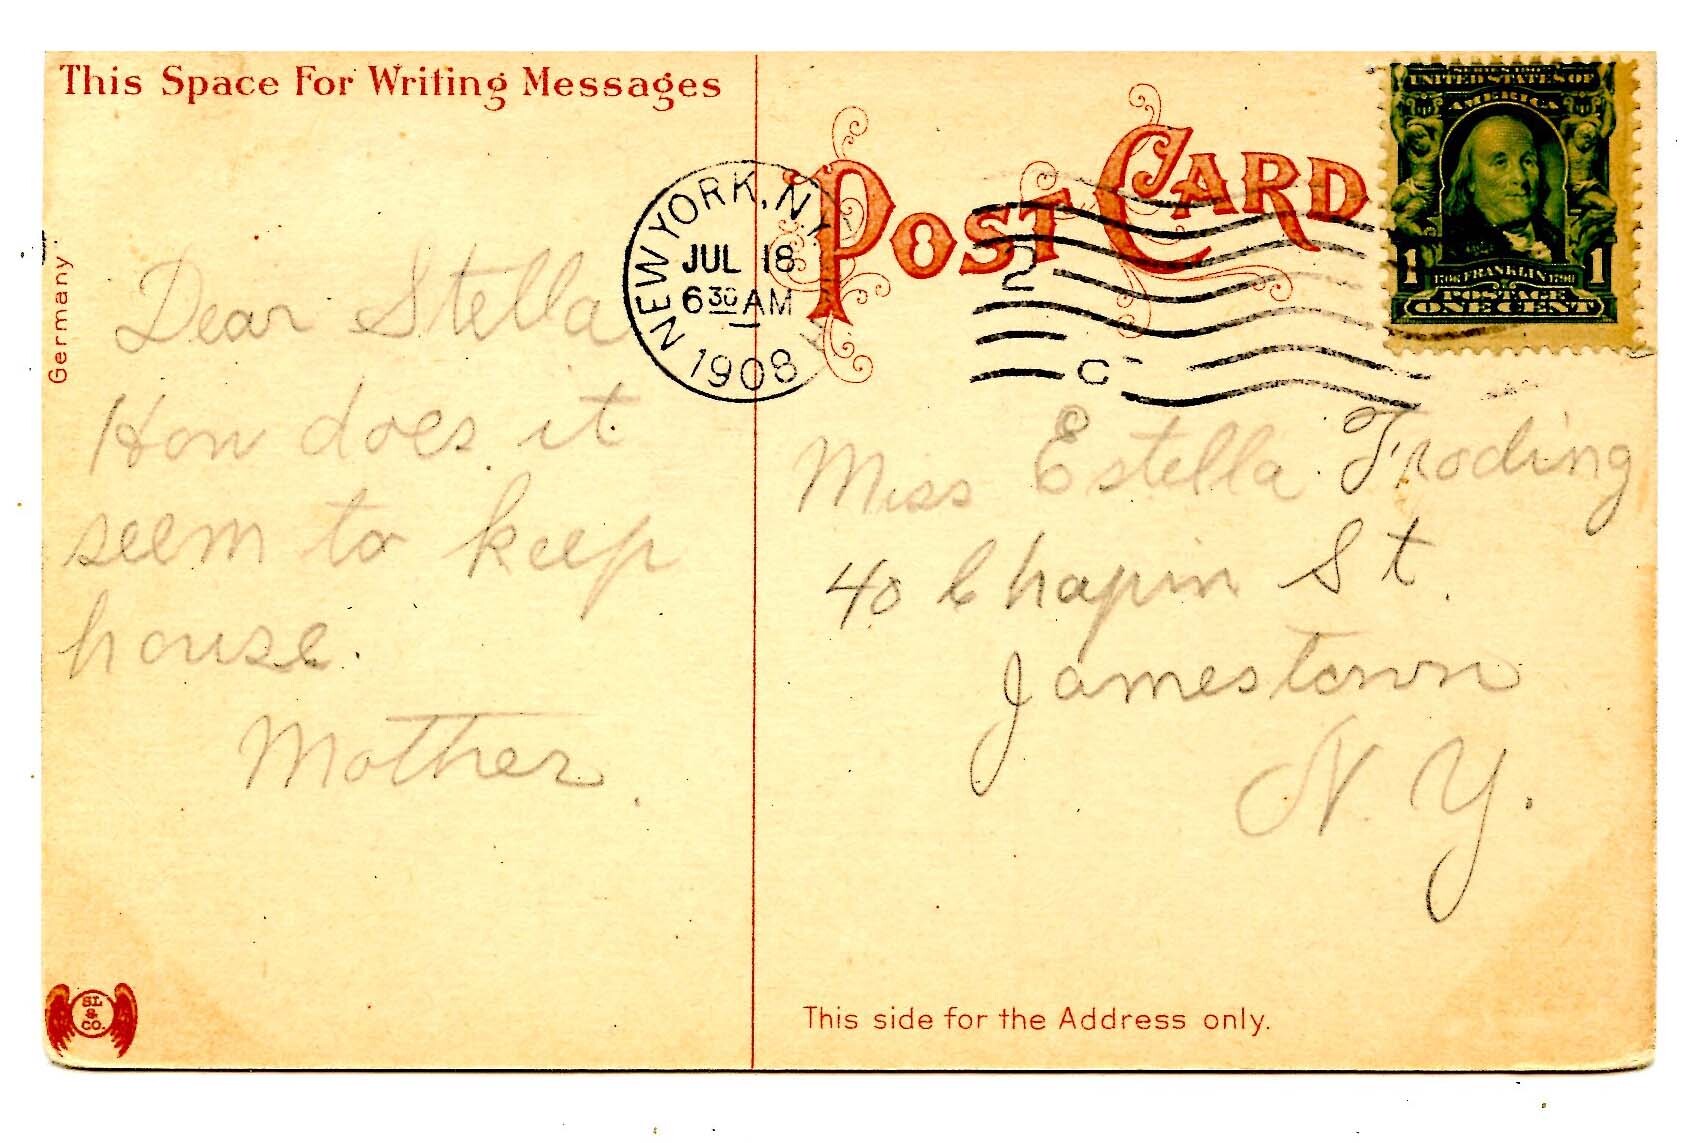 This Space For Writing Messages
POST CARD
UNITED STATES OF
AMERICA
1 FRANKLIN 1
POSTAGE
ONE CENT
NEW YORK, N.Y.
JUL 18
6 30 AM
1908
2
C
Germany
Dear Stella
How does it
seem to keep
house.
Mother.
Miss Estella
40 Chapin St.
Jamestown
N.Y.
SL
&
CO.
This side for the Address only.